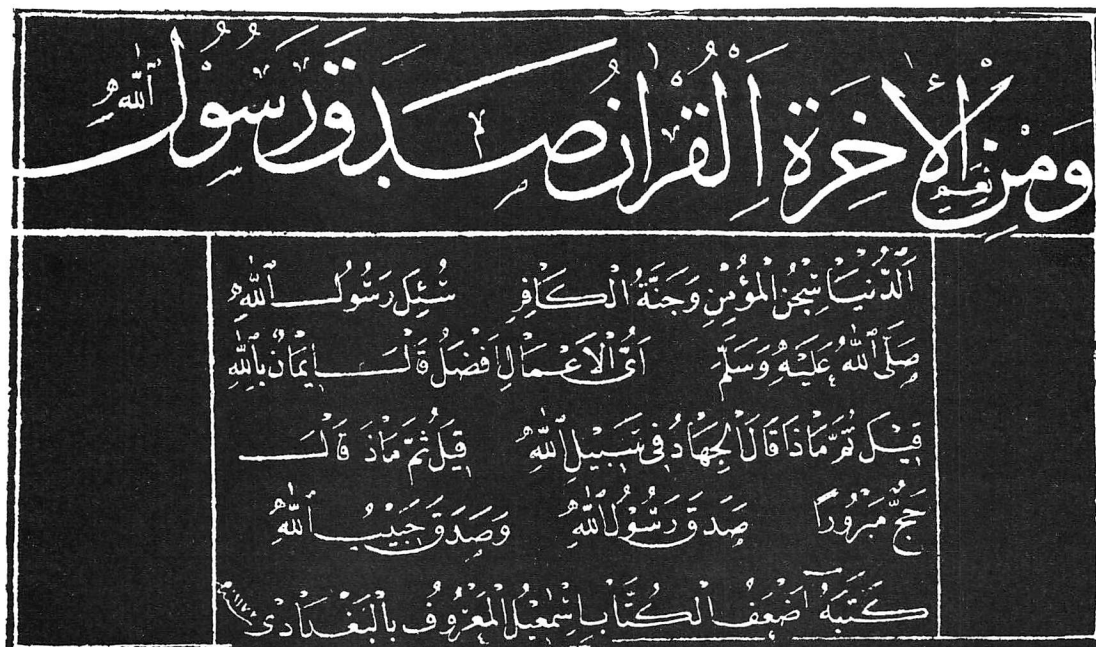 وَمِنْ نَعِيمِ الْأٰخِرَةِ اَلْقُرْاٰنُ صَدَقَ رَسُولُ اللّٰهِ
اَلدُّنْيَا سِجْنُ الْمُؤْمِنِ وَجَنَّةُ الْكَافِرِ سُئِلَ رَسُولُ اللّٰهِ
صَلَّى اللّٰهُ عَلَيْهِ وَسَلَّمَ اَيُّ الْاَعْمَالِ اَفْضَلُ قَالَ اِيمَانٌ بِاللّٰهِ
قِيلَ ثُمَّ مَاذَا قَالَ الْجِهَادُ فِى سَبِيلِ اللّٰهِ قِيلَ ثُمَّ مَاذَ قَالَ
حَجٌّ مَبْرُورًا صَدَقَ رَسُولُ اللّٰهِ وَصَدَقَ حَبِيبُ اللّٰهِ
كَتَبَهُ اَضْعَفُ الْكُتَّابِ اِسْمٰعِيلُ الْمَعْرُوفُ بِالْبَغْدَادِى